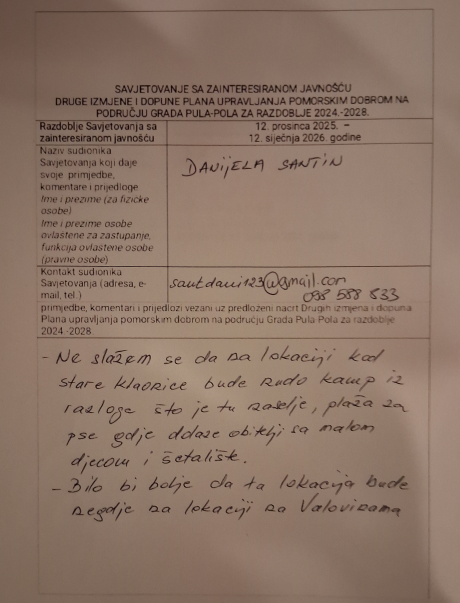 SAVJETOVANJE SA ZAINTERESIRANOM JAVNOŠĆU
DRUGE IZMJENE I DOPUNE PLANA UPRAVLJANJA POMORSKIM DOBROM NA
PODRUČJU GRADA PULA-POLA ZA RAZDOBLJE 2024.-2028.
Razdoblje Savjetovanja sa
zainteresiranom javnošću
12. prosinca 2025. –
12. siječnja 2026. godine
Naziv sudionika
Savjetovanja koji daje
svoje primjedbe,
komentare i prijedloge
Ime i prezime (za fizičke
osobe)
Ime i prezime osobe
ovlaštene za zastupanje,
funkcija ovlaštene osobe
(pravne osobe)
DANIJELA SANTIN
Kontakt sudionika
Savjetovanja (adresa, e-
mail, tel.)
santdani123@gmail.com
098 588 833
primjedbe, komentari i prijedlozi vezani uz predloženi nacrt Drugih izmjena i dopuna
Plana upravljanja pomorskim dobrom na području Grada Pula-Pola za razdoblje
2024.-2028.
- Ne slažem se da na lokaciji kod
stare klaonice bude nudo kamp iz
razloga što je tu naselje, plaža za
pse gdje dolaze obitelji sa malom
djecom i šetalište.
- Bilo bi bolje da ta lokacija bude
negdje na lokaciji na Valovinama